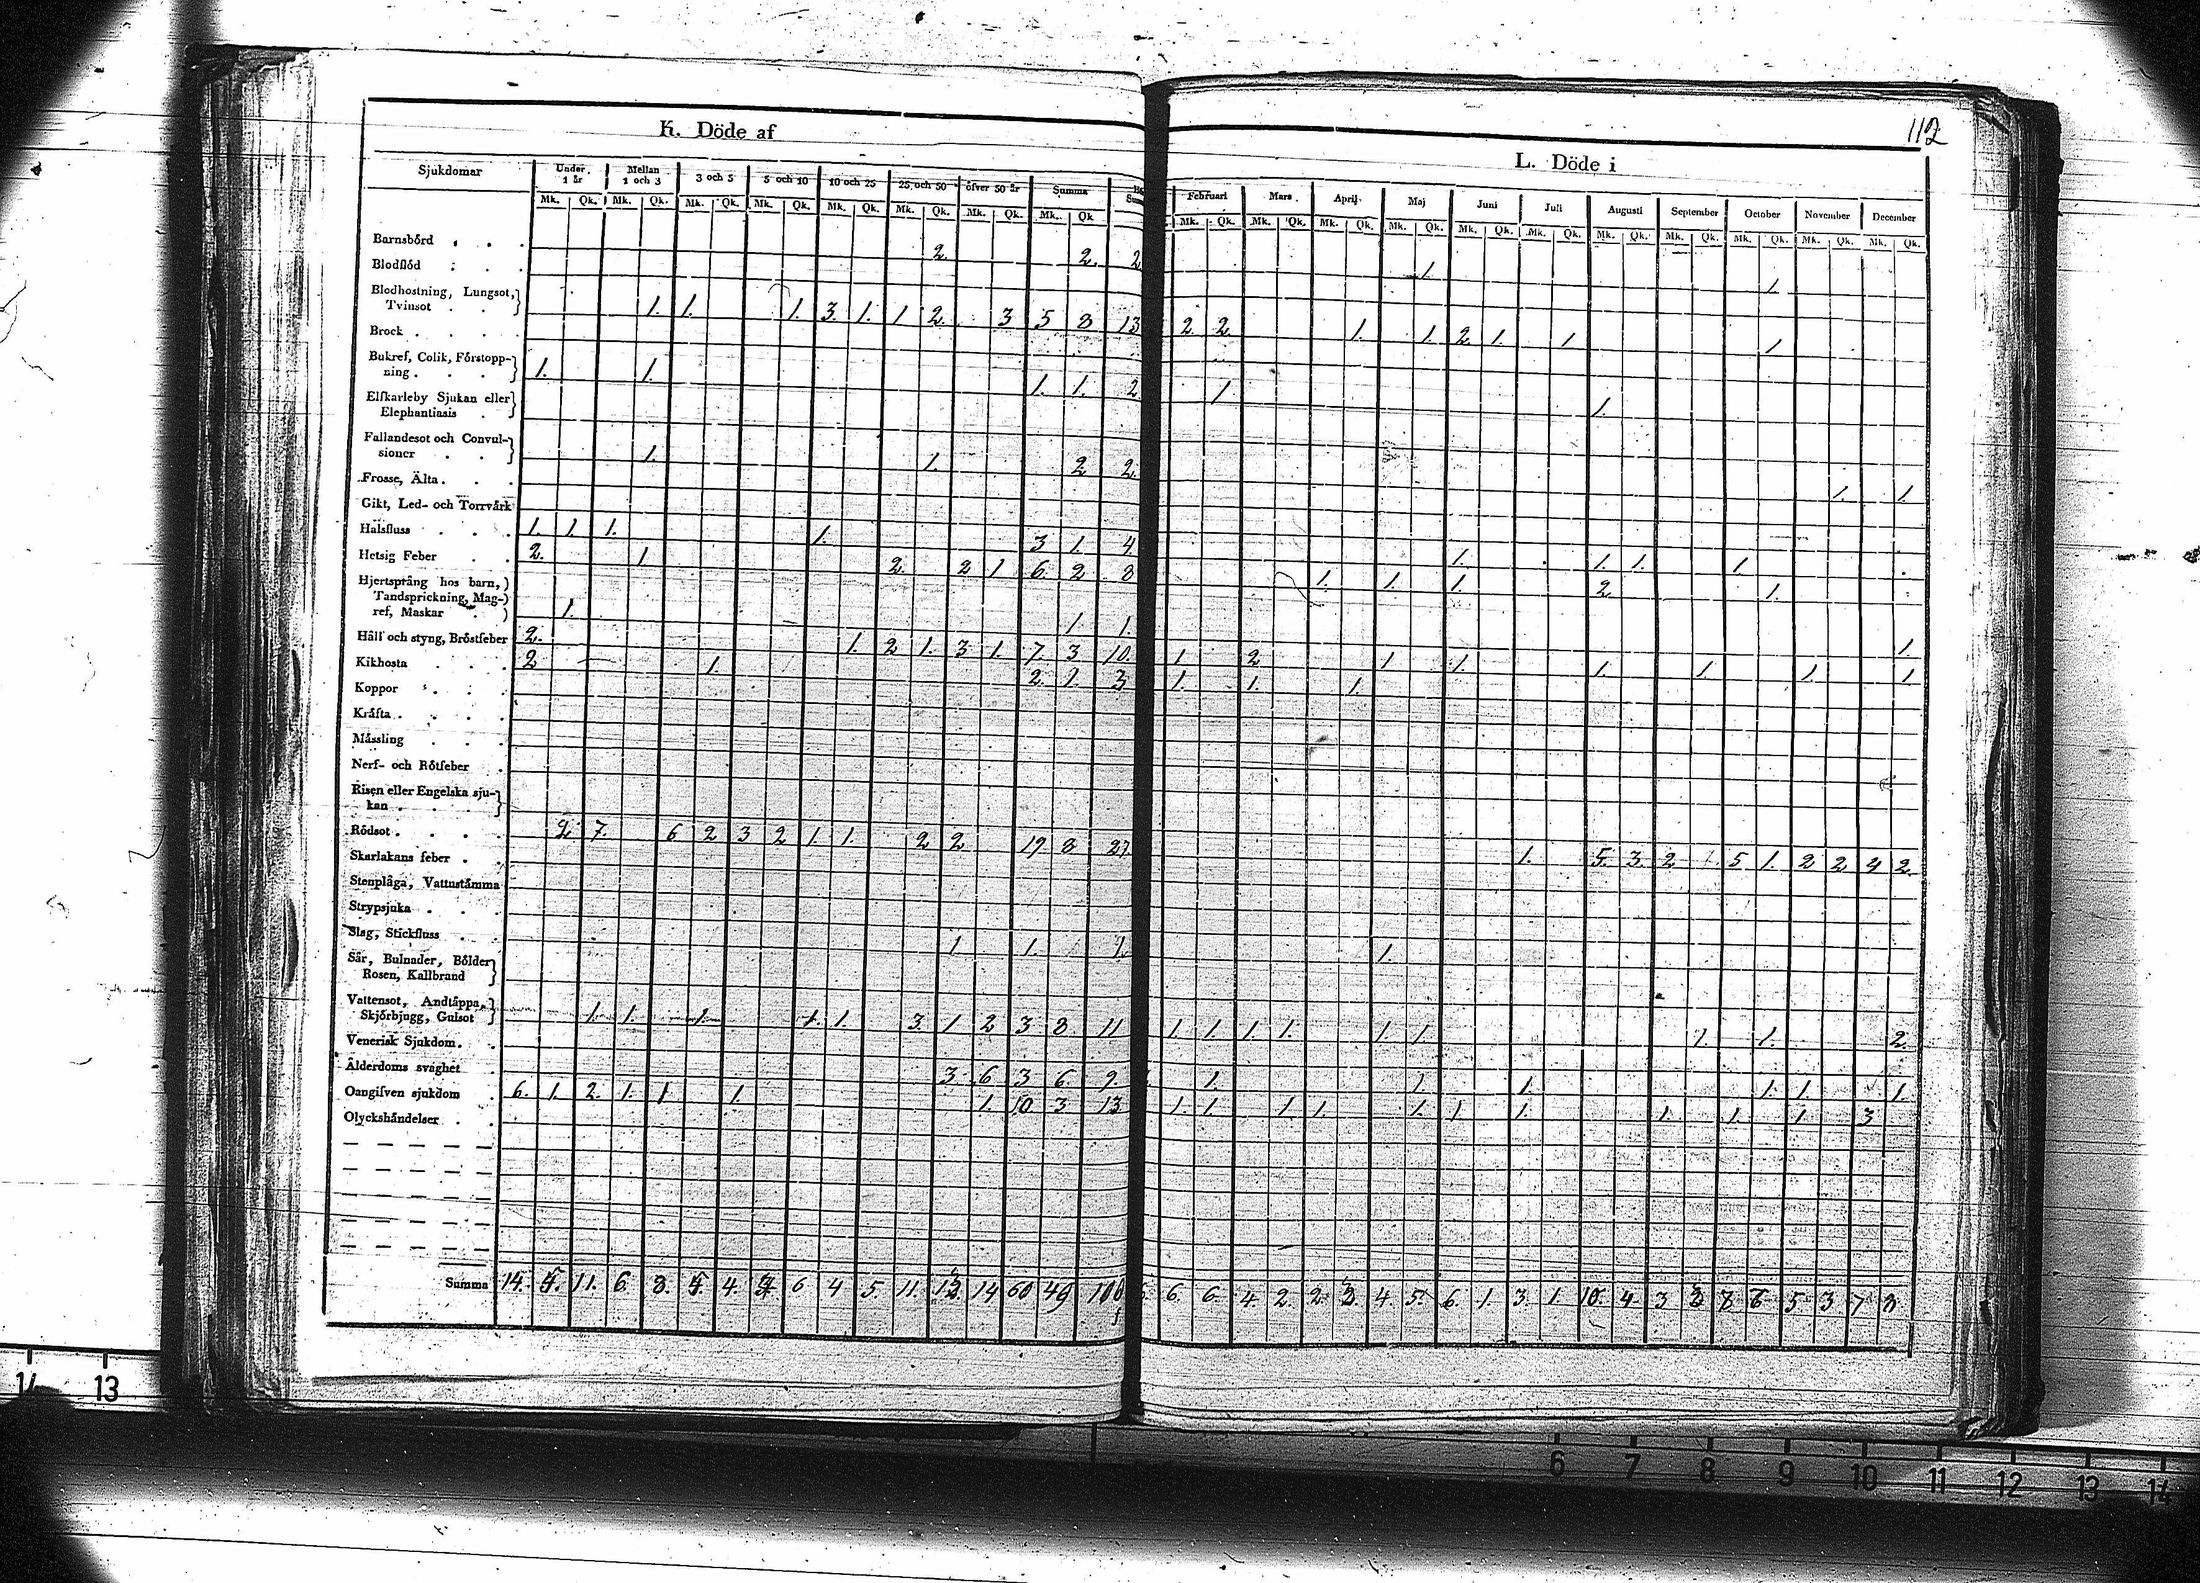 112
K. Döde af
L. Döde i
Sjukdomar Under 1 år Mellan 1 och 3 3 och 5 5 och 10 10 och 25 25 och 50 öfver 50 år Summa
Februari Mars April Maj Juni Juli Augusti September October November December
Mk. Qk. Mk. Qk. Mk. Qk. Mk. Qk. Mk. Qk. Mk. Qk. Mk. Qk. Mk. Qk
Mk. Qk. Mk. Qk. Mk. Qk. Mk. Qk. Mk. Qk. Mk. Qk. Mk. Qk. Mk. Qk. Mk. Qk. Mk. Qk. Mk. Qk.
Barnsbörd 2. 2. 2 1.
Blodflöd 1.
Blodhostning, Lungsot,
Tvinsot 1. 1. 1. 3. 1. 1 2. 3 5 8 13 2. 2. 1. 1. 2. 1. 1 1
Brock
Bukref, Colik, Förstopp-
ning 1. 1. 1. 1. 2 1 1.
Elfkarleby Sjukan eller
Elephantiasis
Fallandesot och Convul-
sioner 1. 1. 2 2. 1 1.
Frosse, Älta
Gikt, Led- och Torrvärk
Halsfluss 1. 1 1. 1. 3 1. 4 1. 1. 1. 1
Hetsig Feber 2. 1 2. 2 1 6 2 8 1. 1. 1. 2 1.
Hjertsprång hos barn,
Tandsprickning, Mag-
ref, Maskar 1. 1 1. 1
Håll och styng, Bröstfeber 2. 1. 2 1. 3 1. 7. 3 10. 1. 2 1 1. 1. 1 1 1
Kikhosta 2 1. 2. 1. 3 1. 1. 1.
Koppor
Kräfta
Mässling
Nerf- och Rötfeber
Risen eller Engelska sju-
kan
Rödsot 2 7. 6 2 3 2 1. 1. 2 2 19 8 27 1. 5. 3. 2 1. 5 1. 2 2 2 2.
Skarlakans feber
Stenplåga, Vattustämma
Strypsjuka
Slag, Stickfluss 1 1. 1. 1.
Sår, Bulnader, Bölder
Rosen, Kallbrand
Vattensot, Andtäppa,
Skjörbjugg, Gulsot 1. 1. 1. 1. 1. 3. 1 2 3 8 11 1. 1 1. 1. 1. 1. 1. 1. 2.
Venerisk Sjukdom
Ålderdoms svaghet 3 6 3 6 9. 1. 1. 1. 1 1. 1.
Oangifven sjukdom 6. 1. 2. 1. 1 1. 1. 10 3 13 1. 1 1 1. 1 1 1. 1. 1. 1 3
Olyckshändelser
Summa 14. 11. 6. 8. 4. 6 4 5. 11. 14 60 49 6. 6. 4. 2. 2. 4. 5. 6. 1. 3. 1. 10. 4 3 8. 5 3 7 8
14 13
6 7 8 9 10 11 12 13 14